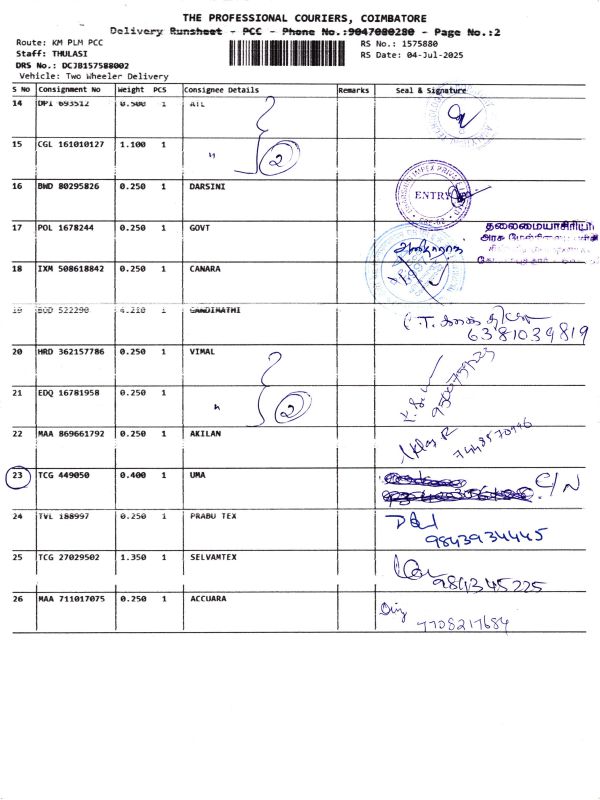 THE PROFESSIONAL COURIERS, COIMBATORE
Delivery Runsheet - PCC - Phone No.:9047080280 - Page No.:2
Route: KM PLM PCC
Staff: THULASI
DRS No.: DCJB157588002
Vehicle: Two Wheeler Delivery
RS No.: 1575880
RS Date: 04-Jul-2025
S No Consignment No Weight PCS Consignee Details Remarks Seal & Signature
14 DPI 693512 0.500 1 ATL
15 CGL 161010127 1.100 1 " 2
16 BWD 80295826 0.250 1 DARSINI ENTRY
17 POL 1678244 0.250 1 GOVT
தலைமையாசிரியர்
18 IXM 508618842 0.250 1 CANARA
19 BOD 522290 4.210 1 GANDIMATHI
6381039819
20 HRD 362157786 0.250 1 VIMAL
21 EDQ 16781958 0.250 1 " 2
22 MAA 869661792 0.250 1 AKILAN
23 TCG 449050 0.400 1 UMA C/N
24 TVL 188997 0.250 1 PRABU TEX
9843934445
25 TCG 27029502 1.350 1 SELVAMTEX
984345225
26 MAA 711017075 0.250 1 ACCUARA
7708217684